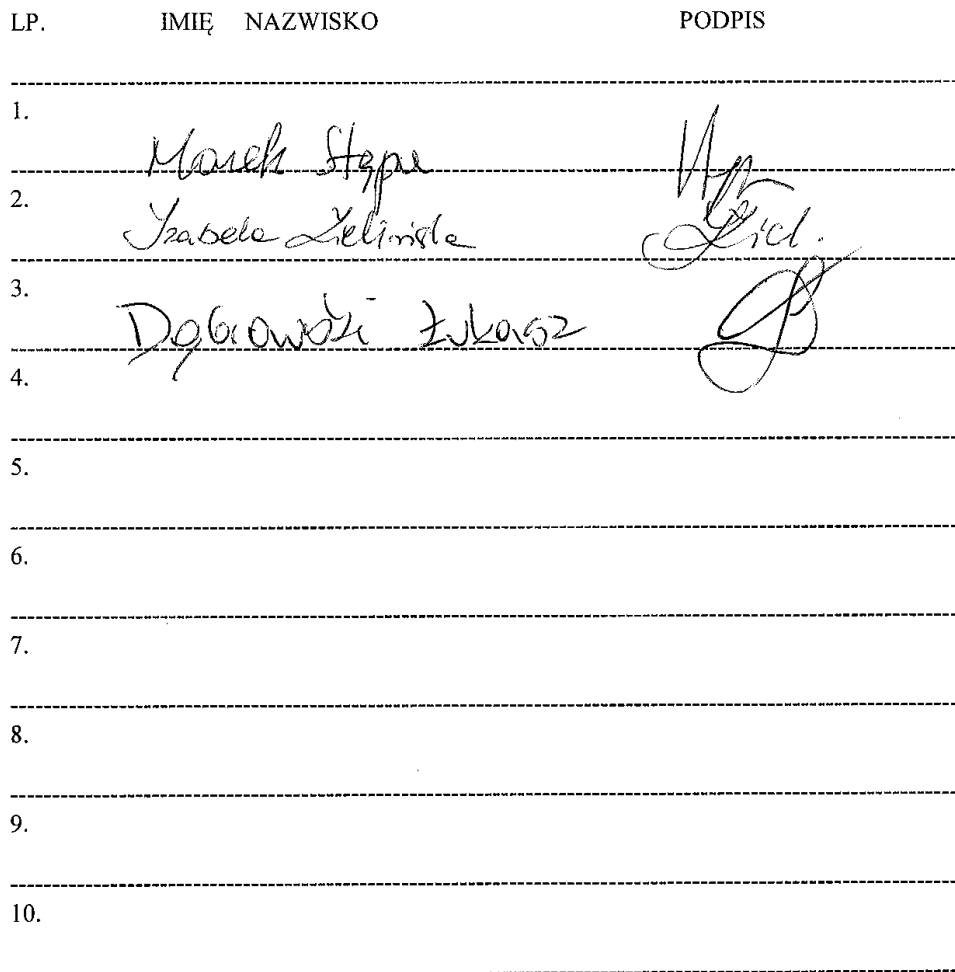 LP. IMIĘ NAZWISKO PODPIS
1. Marek
2. Izabela Zielińska Ziel.
3. Dąbrowski Łukasz
4.
5.
6.
7.
8.
9.
10.